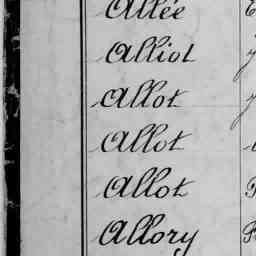 Allée
Alliot
Allot
Allot
Allot
Allory